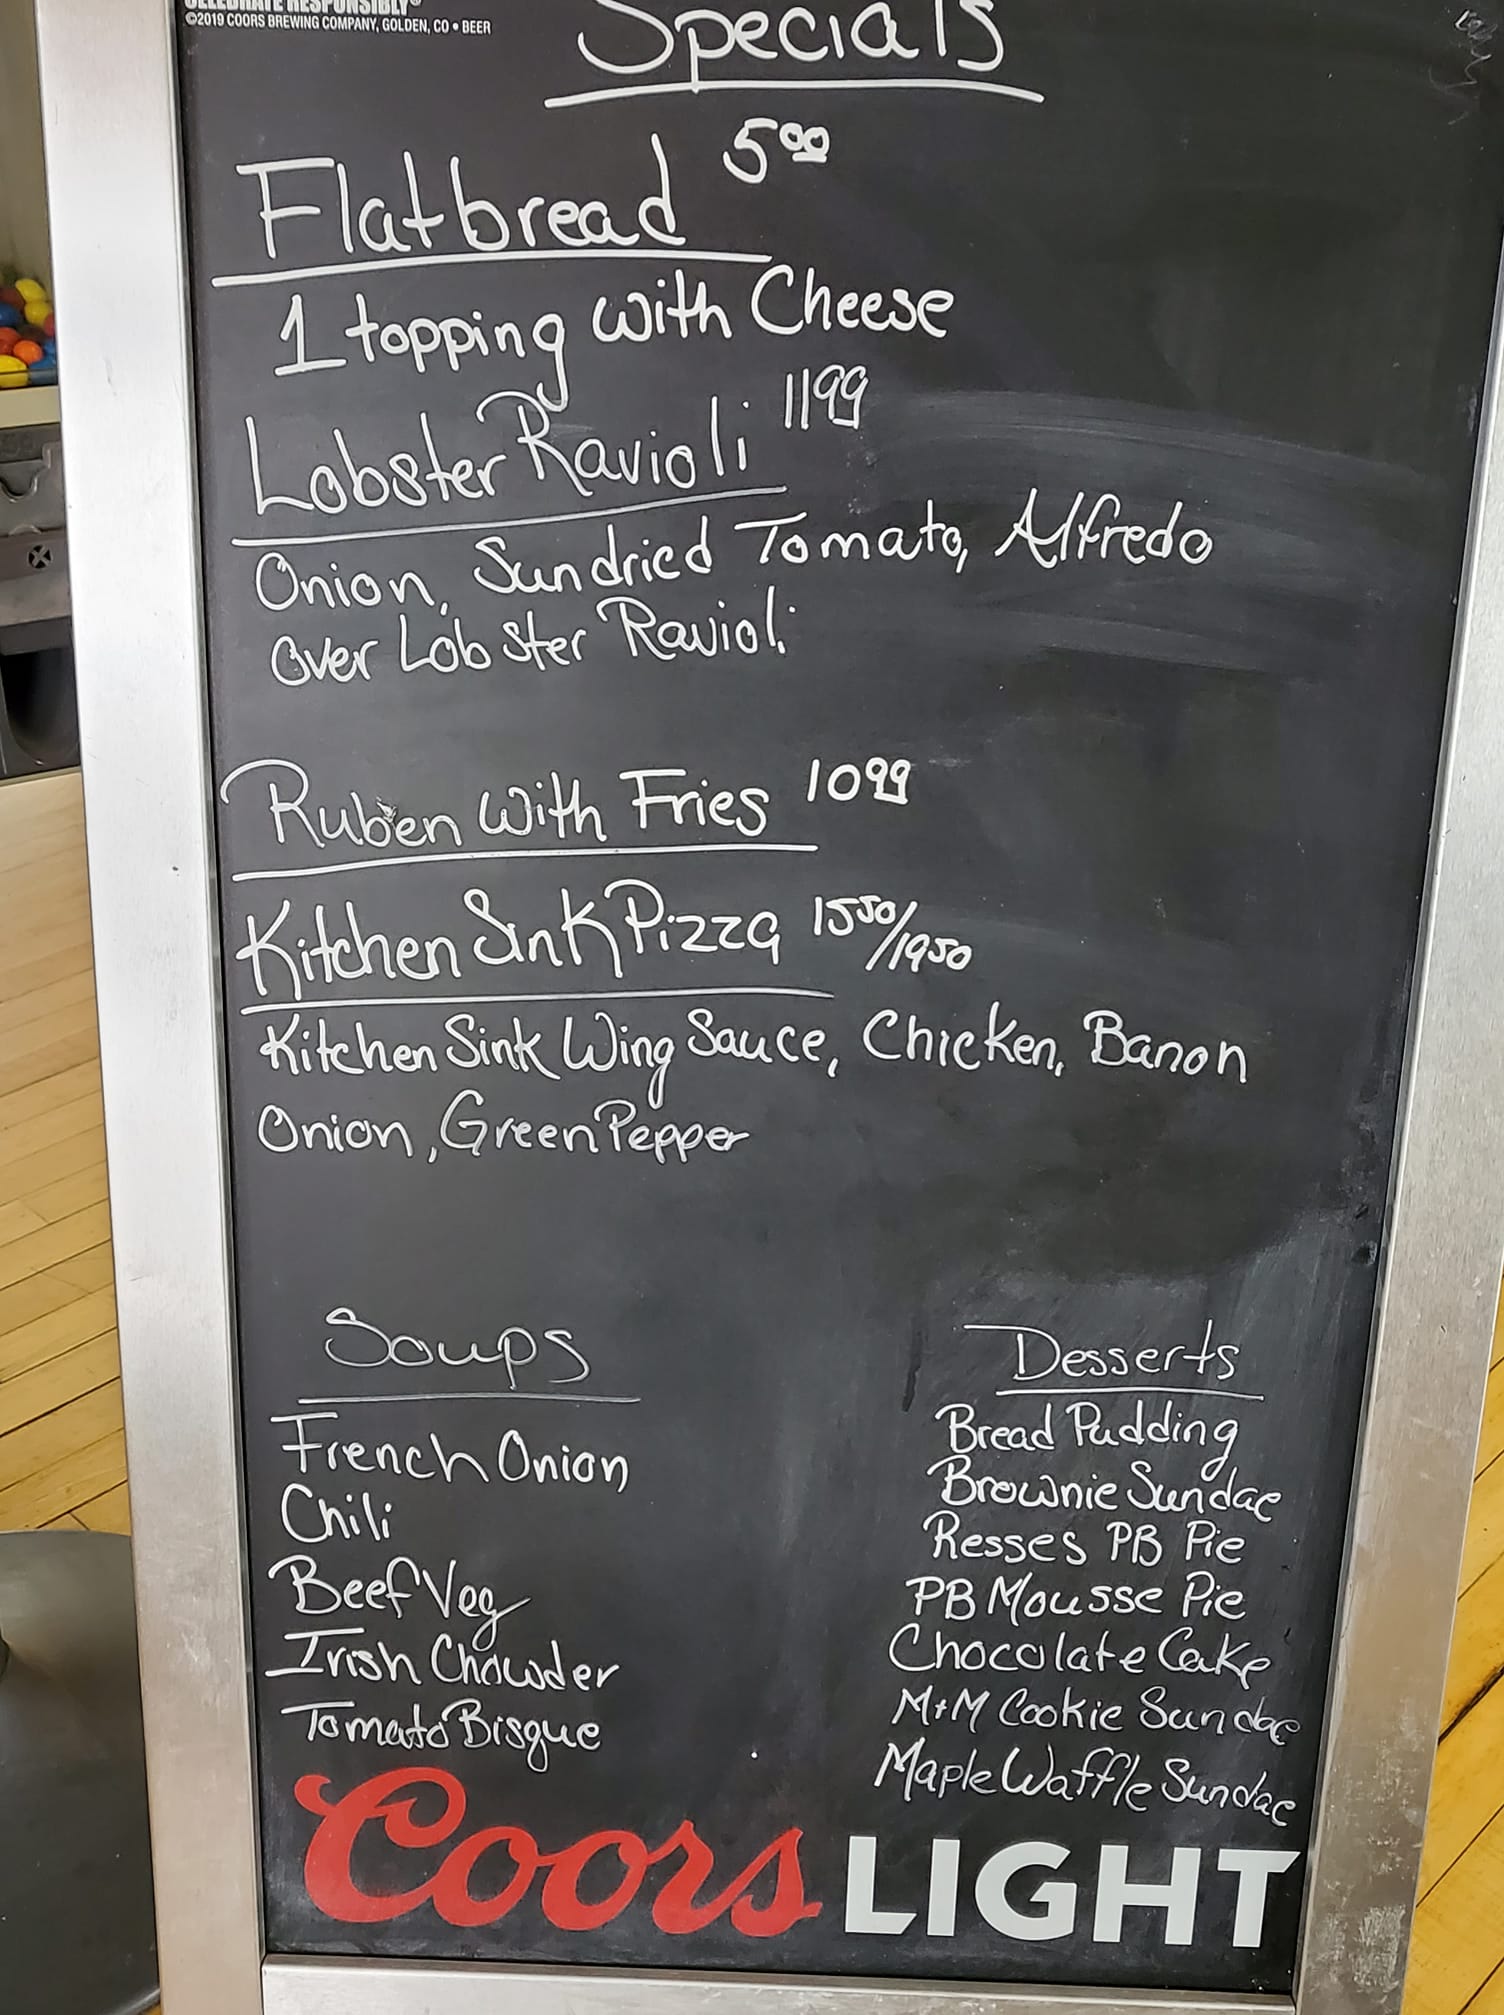 CELEBRATE RESPONSIBLY®
©2019 COORS BREWING COMPANY, GOLDEN, CO • BEER
Specials
Flatbread 5.00
1 topping with Cheese
Lobster Ravioli 11 99
Onion, Sundried Tomato, Alfredo
Over Lobster Ravioli
Ruben with Fries 10 99
Kitchen Sink Pizza 15 50/19 50
Kitchen Sink Wing Sauce, Chicken, Banon
Onion, Green Pepper
Soups
French Onion
Chili
Beef Veg
Irish Chowder
Tomato Bisque
Desserts
Bread Pudding
Brownie Sundae
Resses PB Pie
PB Mousse Pie
Chocolate Cake
M+M Cookie Sundae
Maple Waffle Sundae
Coors LIGHT